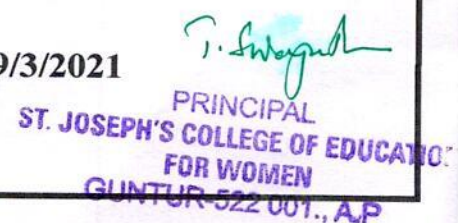 9/3/2021
PRINCIPAL
ST. JOSEPH'S COLLEGE OF EDUCATIO
FOR WOMEN
GUNTUR-522 001., A.P